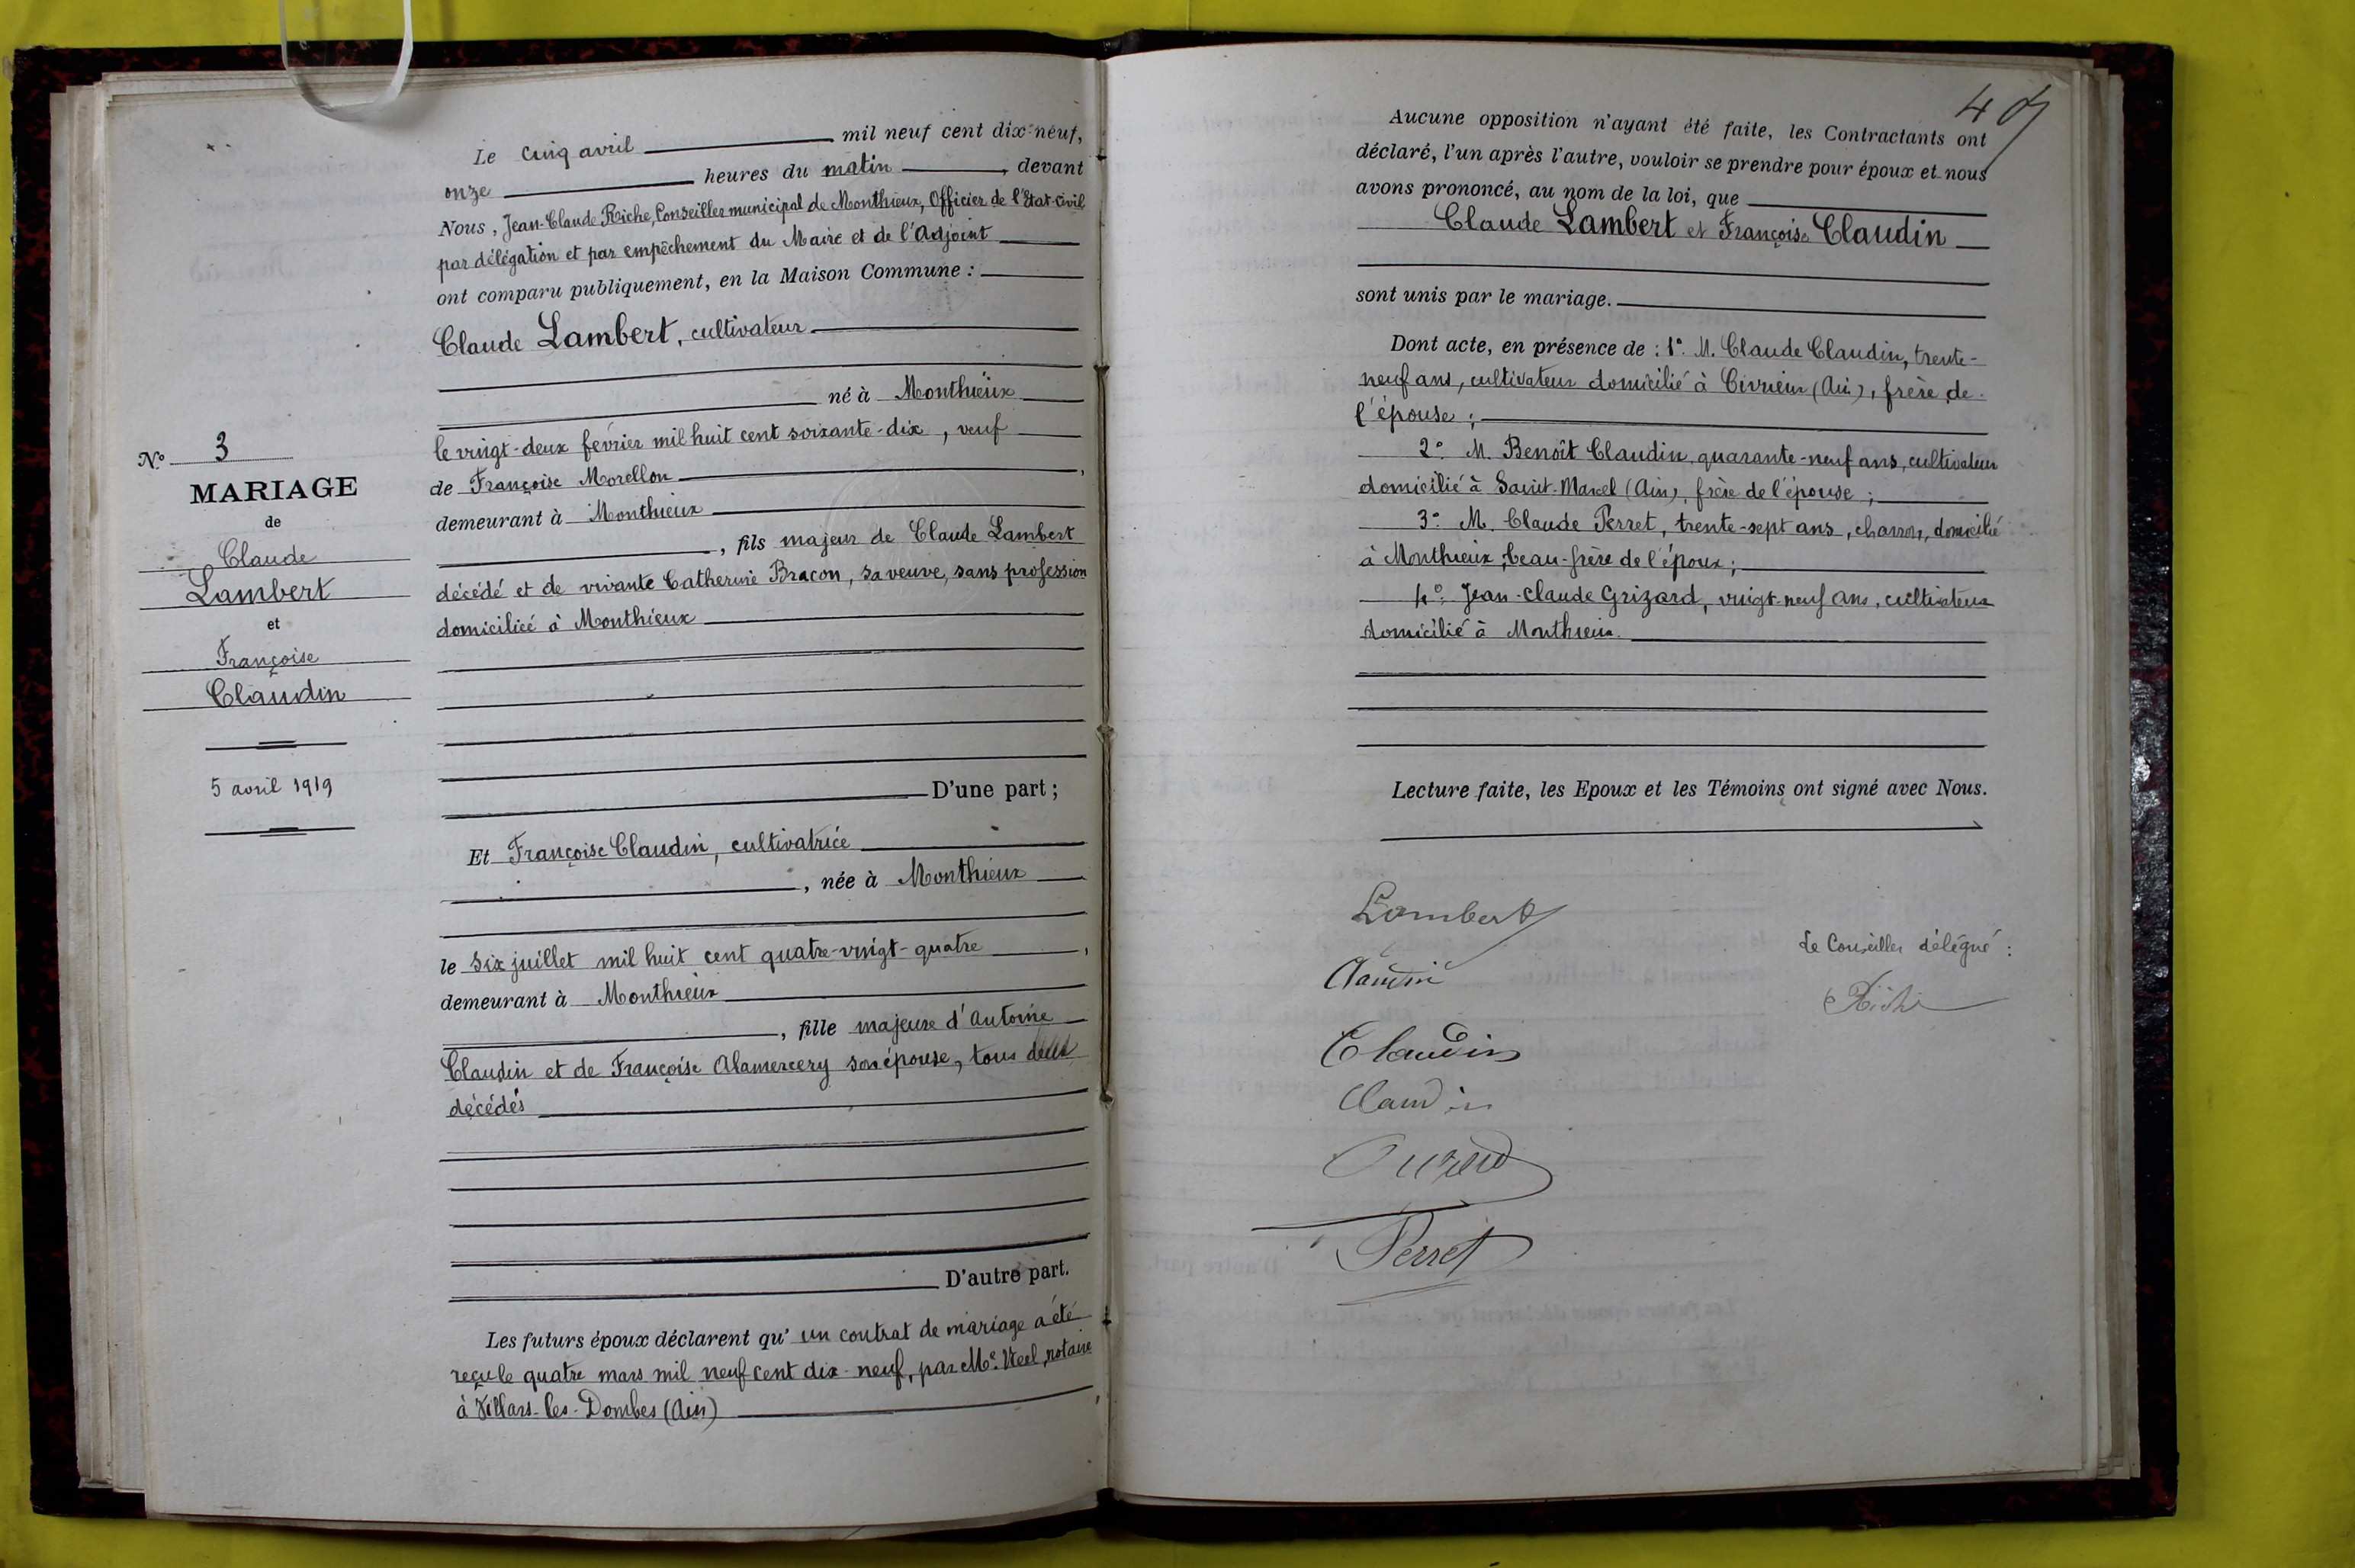 N° 3
MARIAGE
de
Claude
Lambert
et
Françoise
Claudin
5 avril 1919
Le cinq avril mil neuf cent dix-neuf,
onze heures du matin, devant
Nous, Jean-Claude Riche, Conseiller municipal de Monthieux, Officier de l'Etat-Civil
par délégation et par empêchement du Maire et de l'Adjoint
ont comparu publiquement, en la Maison Commune :
Claude Lambert, cultivateur
né à Monthieux
le vingt-deux février mil huit cent soixante-dix, veuf
de Françoise Morellon,
demeurant à Monthieux
, fils majeur de Claude Lambert
décédé et de vivante Catherine Bracon, sa veuve, sans profession
domiciliée à Monthieux
D'une part ;
Et Françoise Claudin, cultivatrice
, née à Monthieux
le six juillet mil huit cent quatre-vingt-quatre,
demeurant à Monthieux
, fille majeure d'Antoine
Claudin et de Françoise Alamercery son épouse, tous deux
décédés
D'autre part.
Les futurs époux déclarent qu'un contrat de mariage a été
reçu le quatre mars mil neuf cent dix-neuf, par Me notaire
à Villars-les-Dombes (Ain)
Aucune opposition n'ayant été faite, les Contractants ont
déclaré, l'un après l'autre, vouloir se prendre pour époux et nous
avons prononcé, au nom de la loi, que
Claude Lambert et Françoise Claudin
sont unis par le mariage.
Dont acte, en présence de : 1° M. Claude Claudin, trente-
neuf ans, cultivateur domicilié à Civrieux (Ain), frère de
l'épouse ;
2° M. Benoît Claudin, quarante-neuf ans, cultivateur
domicilié à Saint-Marcel (Ain), frère de l'épouse ;
3° M. Claude Perret, trente-sept ans, charron, domicilié
à Monthieux, beau-frère de l'époux ;
4° Jean-Claude Grizard, vingt-neuf ans, cultivateur
domicilié à Monthieux.
Lecture faite, les Epoux et les Témoins ont signé avec Nous.
Lambert
Claudin
Le Conseiller délégué :
Riche
Claudin
Claudin
Perret